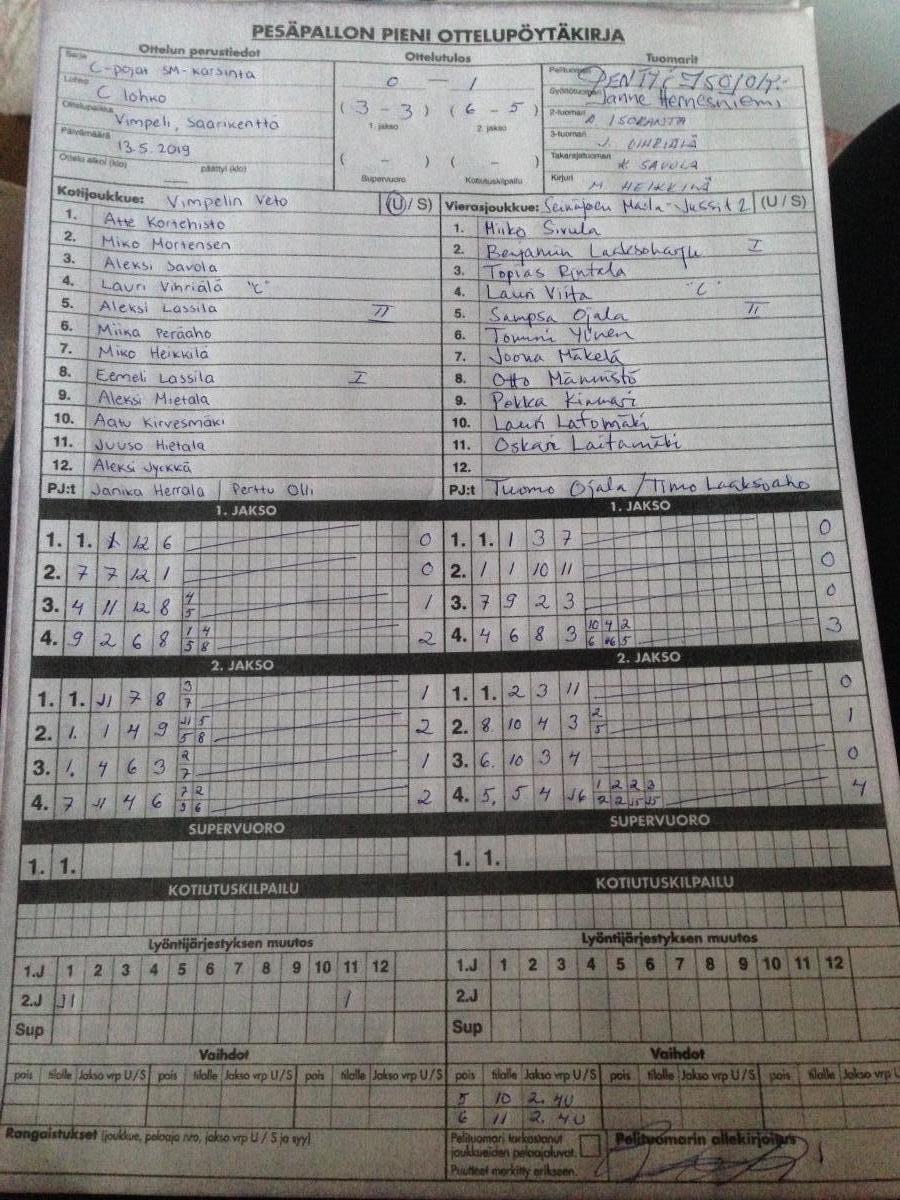 PESÄPALLON PIENI OTTELUPÖYTÄKIRJA
Ottelun perustiedot
Ottelutulos
Tuomarit
Sarja
C-pojat SM-karsinta
Lohko
C lohko
Ottelupaikka
Vimpeli, Saarikenttä
Päivämäärä
13.5.2019
Ottelu alkoi (klo) päättyi (klo)
0 - 1
(3 - 3) (6 - 5)
1. jakso 2. jakso
( - ) ( - )
Supervuoro Kotiutuskilpailu
Pelituomari
PENTTI
Syöttötuomari
Janne Hernesniemi
2-tuomari
A. ISORANTA
3-tuomari
J.
Takarajatuoman
K. SAVOLA
Kirjuri
M. HEIKKINÄ
Kotijoukkue: Vimpelin Veto (U / S)
1. Atte Kortehisto
2. Miko Mortensen
3. Aleksi Savola
4. Lauri Vihriälä "C"
5. Aleksi Lassila II
6. Miika Peräaho
7. Miko Heikkilä
8. Eemeli Lassila I
9. Aleksi Mietala
10. Aatu Kirvesmäki
11. Juuso Hietala
12. Aleksi Jyckkä
PJ:t Janika Herrala / Perttu Olli
Vierasjoukkue: Seinäjoen Maila-Jussit 2 (U / S)
1. Miiko Sivula
2. Benjamin Laaksoharju I
3. Topias Rintala
4. Lauri Viita "C"
5. Sampsa Ojala II
6. Tommi Ylinen
7. Joona Mäkelä
8. Otto Männistö
9. Pekka Kinnari
10. Lauri Latomäki
11. Oskari Laitamäki
12.
PJ:t Tuomo Ojala / Timo Laaksoaho
1. JAKSO
1. 1. 1 12 6 0
2. 7 7 12 1 0
3. 4 11 12 8 4/5 1
4. 9 2 6 8 1/5 4/8 2
2. JAKSO
1. 1. 11 7 8 3/7 1
2. 1. 1 4 9 11/5 5/8 2
3. 1. 4 6 3 2/7 1
4. 7 11 4 6 7/9 2/6 2
SUPERVUORO
1. 1.
KOTIUTUSKILPAILU
1. JAKSO
1. 1. 1 3 7 0
2. 1 1 10 11 0
3. 7 9 2 3 0
4. 4 6 8 3 3
2. JAKSO
1. 1. 2 3 11 0
2. 8. 10 4 3 2/5 1
3. 6. 10 3 4 0
4. 5. 5 4 4
SUPERVUORO
1. 1.
KOTIUTUSKILPAILU
Lyöntijärjestyksen muutos
1.J 1 2 3 4 5 6 7 8 9 10 11 12
2.J 11 1
Sup
Lyöntijärjestyksen muutos
1.J 1 2 3 4 5 6 7 8 9 10 11 12
2.J
Sup
Vaihdot
pois tilalle Jakso vrp U/S pois tilalle Jakso vrp U/S pois tilalle Jakso vrp U/S
Vaihdot
pois tilalle Jakso vrp U/S pois tilalle Jakso vrp U/S pois tilalle Jakso vrp U
5 10 2. 4U
6 11 2. 4U
Rangaistukset (joukkue, pelaaja nro, jakso vrp U / S ja syy)
Pelituomari tarkastanut
joukkueiden pelaajaluvat.
Puutteet merkitty erikseen.
Pelituomarin allekirjoitus